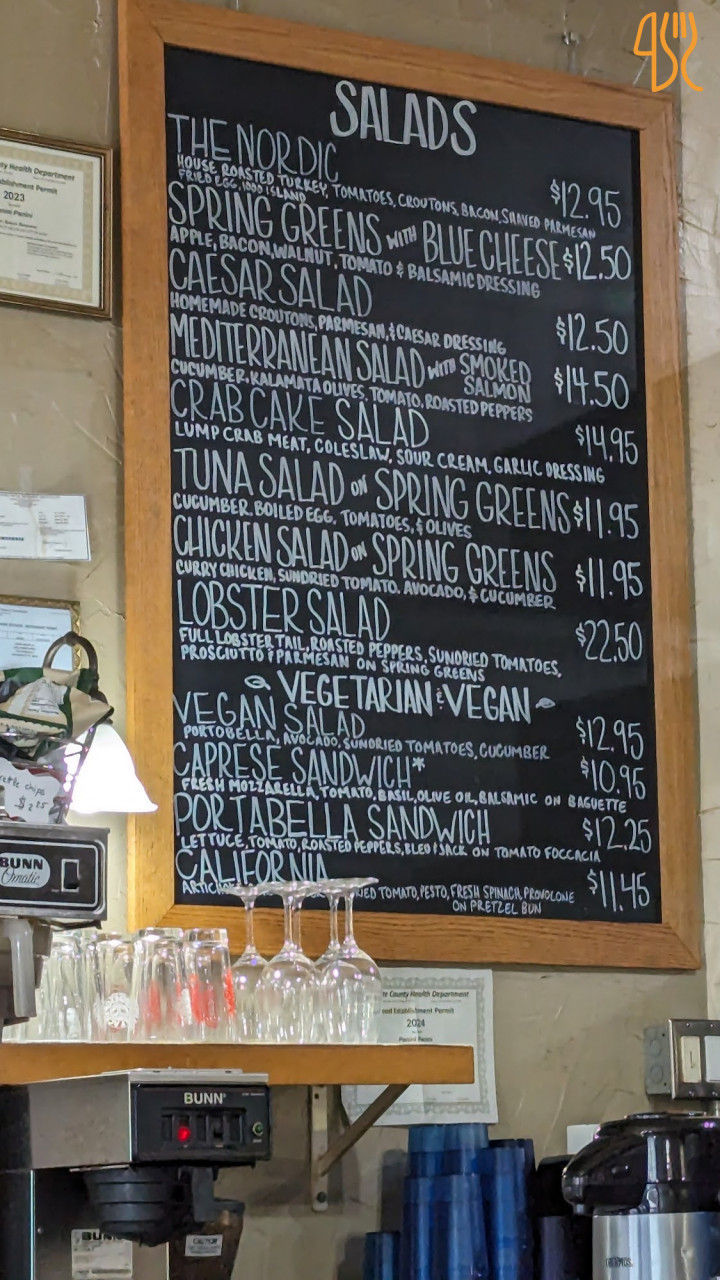 SALADS
THE NORDIC
HOUSE ROASTED TURKEY, TOMATOES, CROUTONS, BACON, SHAVED PARMESAN $12.95
FRIED EGG, 1000 ISLAND
SPRING GREENS WITH BLUE CHEESE $12.50
APPLE, BACON, WALNUT, TOMATO & BALSAMIC DRESSING
CAESAR SALAD $12.50
HOMEMADE CROUTONS, PARMESAN, & CAESAR DRESSING
MEDITERRANEAN SALAD WITH SMOKED SALMON $14.50
CUCUMBER, KALAMATA OLIVES, TOMATO, ROASTED PEPPERS
CRAB CAKE SALAD $14.95
LUMP CRAB MEAT, COLESLAW, SOUR CREAM, GARLIC DRESSING
TUNA SALAD ON SPRING GREENS $11.95
CUCUMBER, BOILED EGG, TOMATOES, & OLIVES
CHICKEN SALAD ON SPRING GREENS $11.95
CURRY CHICKEN, SUNDRIED TOMATO, AVOCADO, & CUCUMBER
LOBSTER SALAD $22.50
FULL LOBSTER TAIL, ROASTED PEPPERS, SUNDRIED TOMATOES,
PROSCIUTTO & PARMESAN ON SPRING GREENS
VEGETARIAN & VEGAN
VEGAN SALAD $12.95
PORTOBELLA, AVOCADO, SUNDRIED TOMATOES, CUCUMBER
CAPRESE SANDWICH* $10.95
FRESH MOZZARELLA, TOMATO, BASIL, OLIVE OIL, BALSAMIC ON BAGUETTE
PORTABELLA SANDWICH $12.25
LETTUCE, TOMATO, ROASTED PEPPERS, BLEU & JACK ON TOMATO FOCCACIA
CALIFORNIA $11.45
TOMATO, PESTO, FRESH SPINACH, PROVOLONE
ON PRETZEL BUN
ty Health Department
stablishment Permit
2023
chips
$2.25
BUNN
Omatic
County Health Department
ood Establishment Permit
2024
BUNN
BUNN
CAUTION